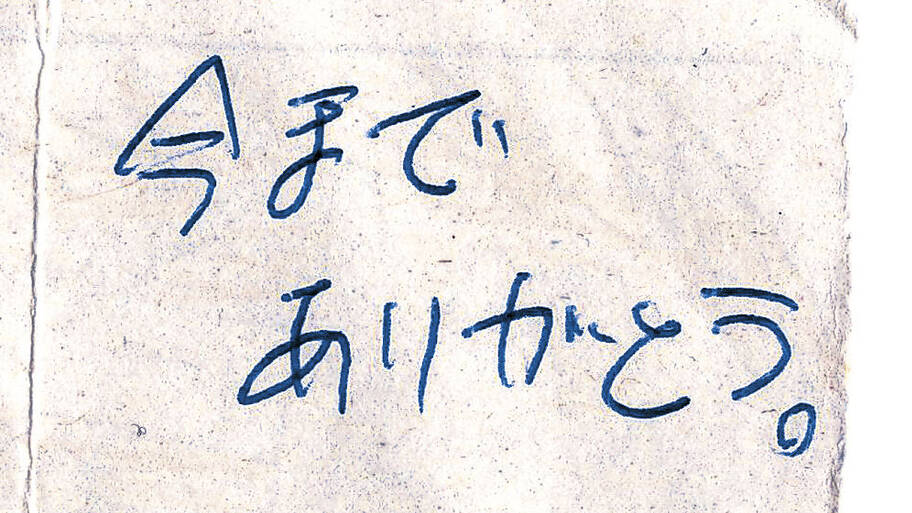 今まで
ありがとう。